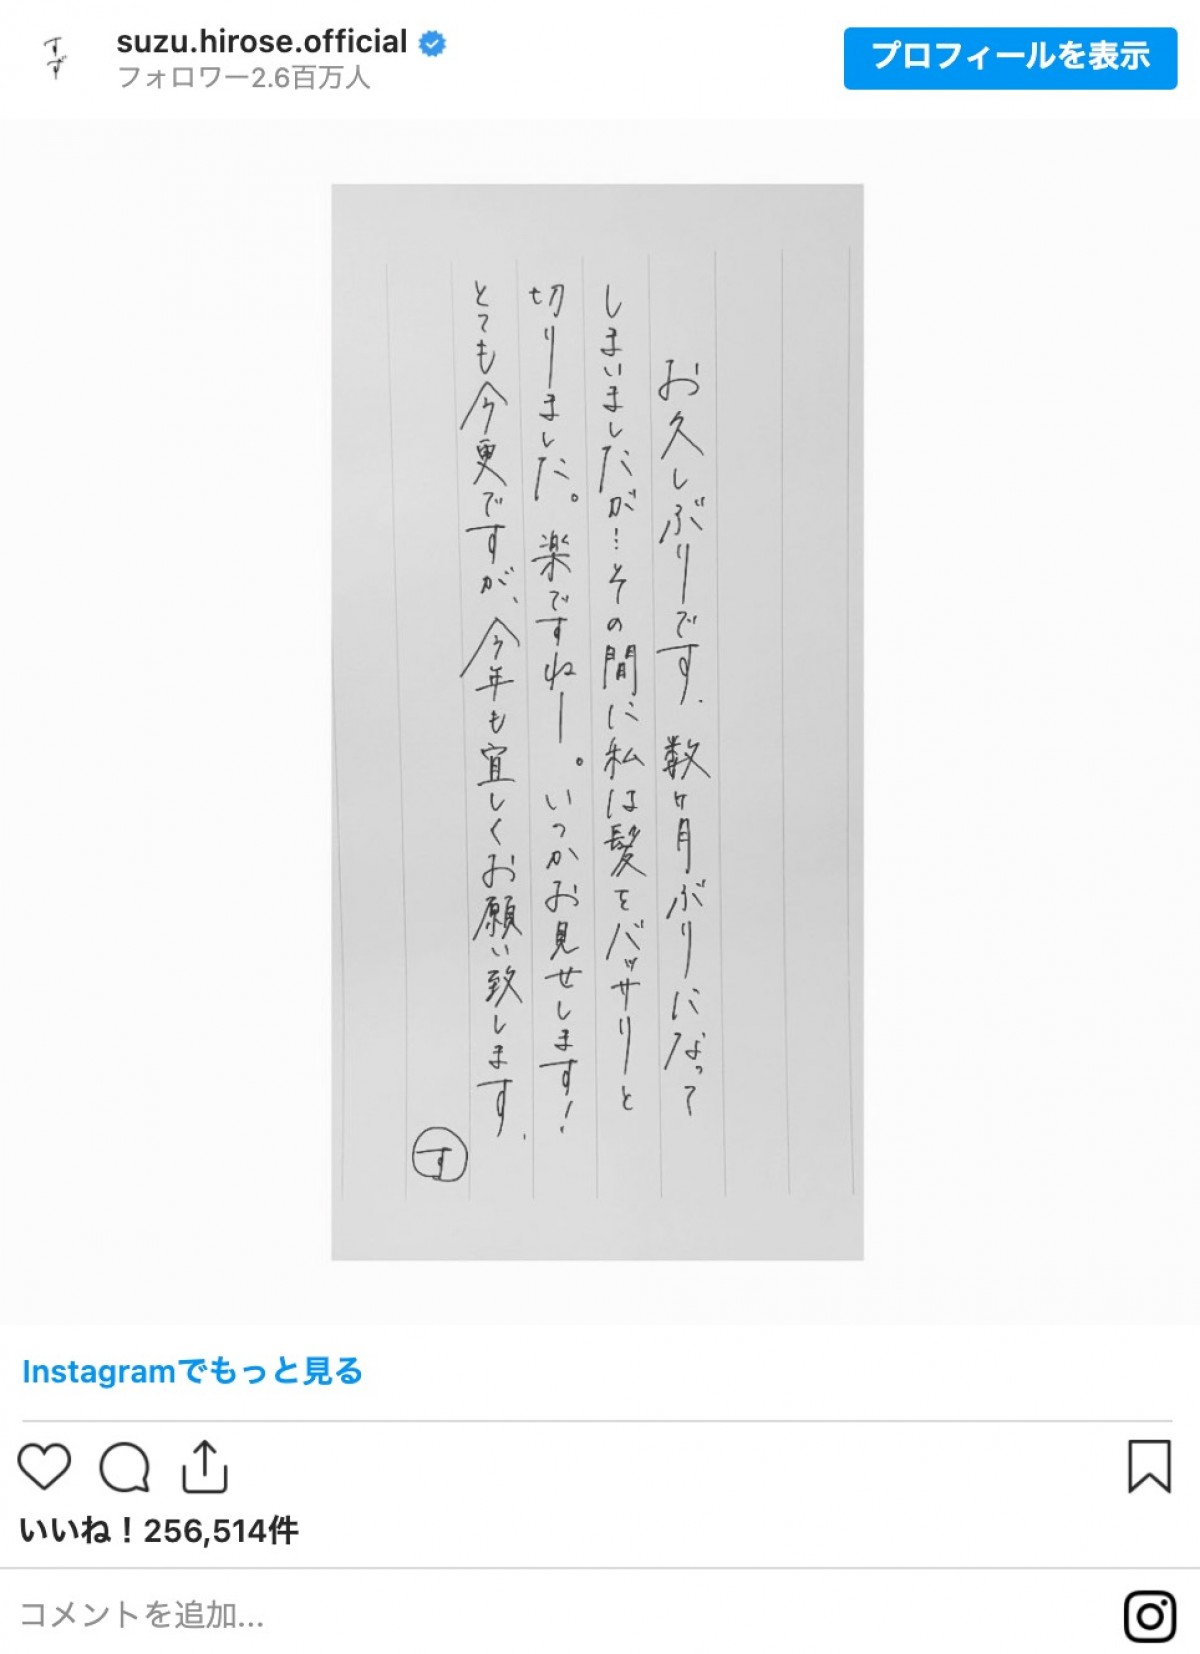 すず
suzu.hirose.official
フォロワー2.6百万人
プロフィールを表示
お久しぶりです。数ヶ月ぶりになって
しまいましたが…その間に私は髪をバッサリと
切りました。楽ですねー。いつかお見せします!
とても今更ですが、今年も宜しくお願い致します。
す
Instagramでもっと見る
いいね！256,514件
コメントを追加...